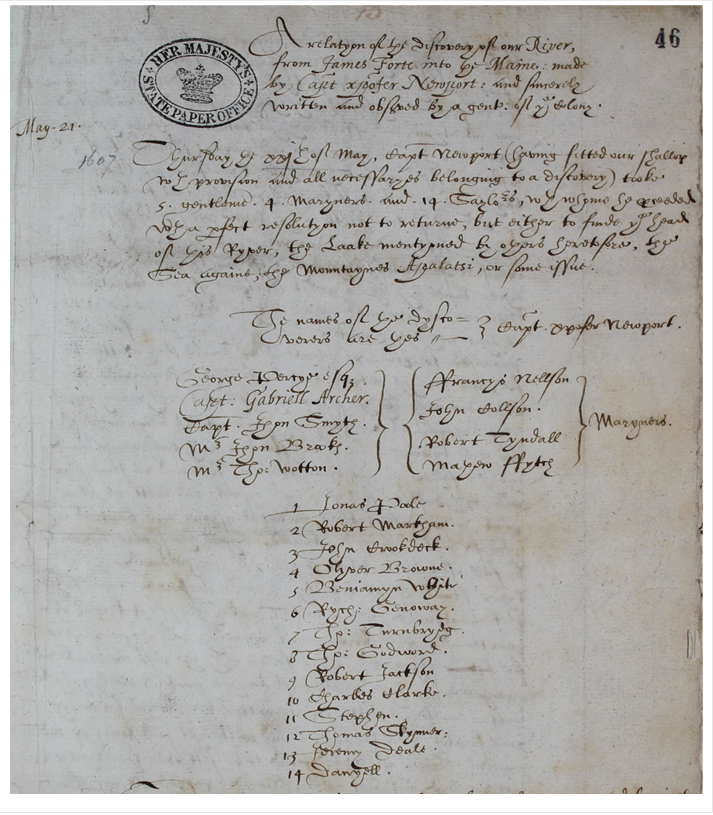 46
HER MAJESTY'S
STATE PAPER OFFICE
A relatyon of the discovery of our River,
from James Forte into the Maine: made
by Capt xpofer Newport: and sincerely
written and observed by a gent. of ye Colony.
May-21.
1607
Thursday the xxjth of May, Capt Newport (having fitted our shallop
wth provision and all necessaryes belonging to a discovery) tooke
5. gentlemē. 4. Maryners. and .14. Saylors, wth whome he proceeded
wth a pfect resolutyon not to returne, but either to finde ye head
of this Ryver, the Laake mentyoned by others heretofore, the
Sea againe, the Mountaynes Apalatsi, or some issue.
The names of the dysco=
verers are thes
Capt. xpofer Newport.
George Percye esq
Capt: Gabriell Archer.
Capt. Jhon Smyth.
Mr Jhon Brooks.
Mr Tho: Wotton.
ffrancys Nellson
John Collson.
Robert Tyndall
Mathew ffytch
Maryners.
1 Jonas Poole
2 Robert Markham.
3 John Crookdeck.
4 Olyver Browne.
5 Beniamyn White
6 Rych: Genoway.
7 Tho: Turnbrydg.
8 Tho: Godword.
9 Robert Jackson
10 Charles Clarke.
11 Stephen.
12 Thomas Skynner.
13 Jeremy Deale
14 Danyell.